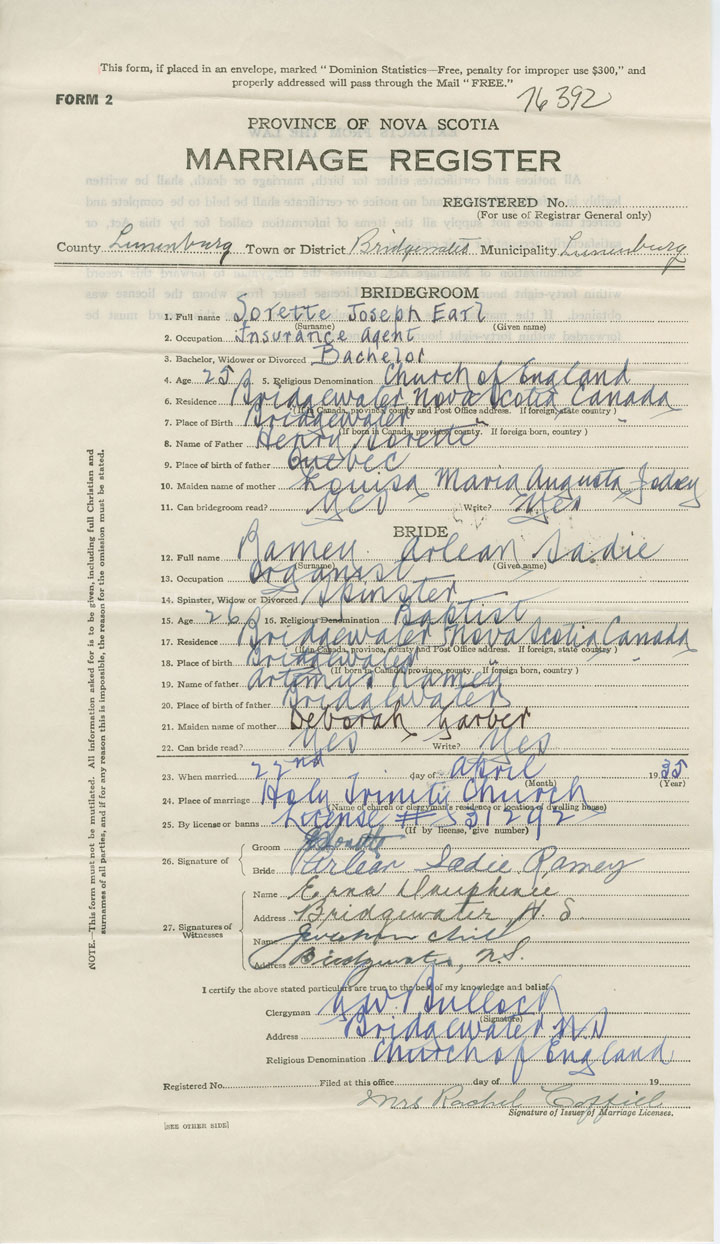 This form, if placed in an envelope, marked "Dominion Statistics—Free, penalty for improper use $300," and
properly addressed will pass through the Mail "FREE."
FORM 2
76392
PROVINCE OF NOVA SCOTIA
MARRIAGE REGISTER
REGISTERED No.
(For use of Registrar General only)
County Lunenburg Town or District Bridgewater Municipality Lunenburg
BRIDEGROOM
1. Full name Sorette Joseph Earl
(Surname) (Given name)
2. Occupation Insurance Agent
3. Bachelor, Widower or Divorced Bachelor
4. Age 25 5. Religious Denomination Church of England
6. Residence Bridgewater Nova Scotia Canada
(If in Canada, province, county and Post Office address. If foreign, state country)
7. Place of Birth Bridgewater
(If born in Canada, province, county. If foreign born, country)
8. Name of Father Henry Sorette
9. Place of birth of father Quebec
10. Maiden name of mother Louisa Maria Augusta
11. Can bridegroom read? Yes Write? Yes
BRIDE
12. Full name Ramey Arlean Sadie
(Surname) (Given name)
13. Occupation Organist
14. Spinster, Widow or Divorced Spinster
15. Age 26 16. Religious Denomination Baptist
17. Residence Bridgewater Nova Scotia Canada
(If in Canada, province, county and Post Office address. If foreign, state country)
18. Place of birth Bridgewater
(If born in Canada, province, county. If foreign born, country)
19. Name of father Artemus Ramey
20. Place of birth of father Bridgewater
21. Maiden name of mother Deborah Garber
22. Can bride read? Yes Write? Yes
23. When married 22nd day of April 1935
(Month) (Year)
24. Place of marriage Holy Trinity Church
(Name of church or clergyman's residence or location of dwelling house)
25. By license or banns License # 531292
(If by license, give number)
26. Signature of
Groom
Bride Arlean Sadie Ramey
27. Signatures of Witnesses
Name Erna Dauphinee
Address Bridgewater N. S.
Name
Address Bridgewater, N.S.
I certify the above stated particulars are true to the best of my knowledge and belief.
Clergyman G.W. Bullock
(Signature)
Address Bridgewater N.S
Religious Denomination Church of England
Registered No. Filed at this office day of 19
Mrs Rachel
Signature of Issuer of Marriage Licenses.
[SEE OTHER SIDE]
NOTE.—This form must not be mutilated. All information asked for is to be given, including full Christian and
surnames of all parties, and if for any reason this is impossible, the reason for the omission must be stated.